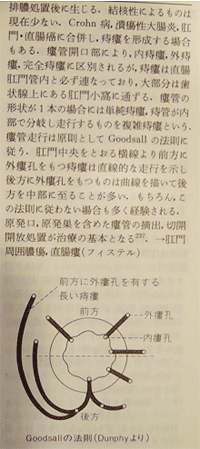 排膿処置後に生じる．結核性によるものは
現在少ない．Crohn病，潰瘍性大腸炎，肛
門・直腸癌に合併し，瘻管を形成する場合
もある．瘻管開口部により，内痔瘻，外痔
瘻，完全痔瘻に区別されるが，痔瘻は直腸
肛門管内と必ず連なっており，大部分は歯
状線上にある肛門小窩に通ずる．瘻管の
形状が1本の場合には単純痔瘻，瘻管が内
部で分岐し走行するものを複雑痔瘻という．
瘻管走行は原則としてGoodsallの法則に
従う．肛門中央をとおる横線より前方に
外瘻孔をもつ痔瘻は直線的な走行を示し
後方に外瘻孔をもつものは曲線を描いて後
方を中部に至ることが多い．もちろん，こ
の法則に従わない場合も多く経験される．
原発口，原発巣を含めた瘻管の摘出，切開
開放処置が治療の基本となる
→肛門
周囲膿瘍，直腸瘻(フィステル)
前方に外瘻孔を有する
長い痔瘻
前方
外瘻孔
内瘻孔
後方
Goodsallの法則(Dunphyより)